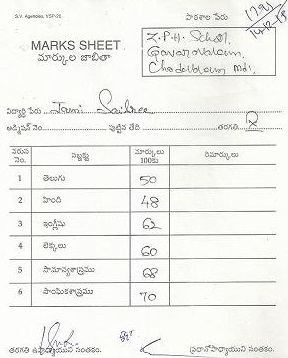 S.V. Agencies, VSP-20
పాఠశాల పేరు
MARKS SHEET
మార్కుల జాబితా
Z.P.H. School,
Gavaravaram,
Chodavaram Md.
విద్యార్థి పేరు Jami Saisree
అడ్మిషన్ నెం. పుట్టిన తేది తరగతి X
వరుస నెం. సబ్జక్టు మార్కులు 100కు రిమార్కులు
1 తెలుగు 50
2 హింది 48
3 ఇంగ్లీషు 62
4 లెక్కలు 60
5 సామాన్యశాస్త్రము 68
6 సాంఘికశాస్త్రము 70
తరగతి ఉపాధ్యాయుని సంతకం. ప్రధానోపాధ్యాయుని సంతకం.